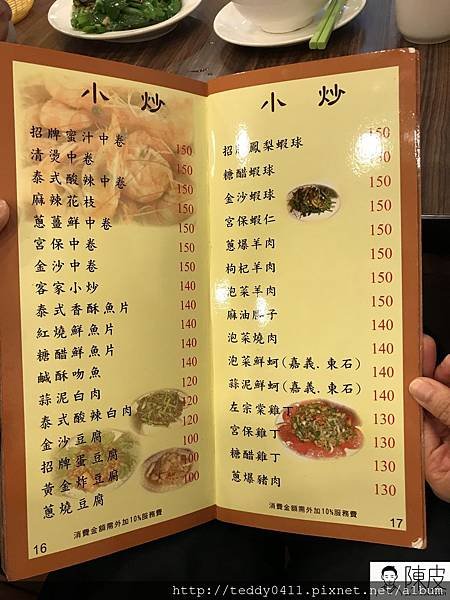 小炒
招牌蜜汁中卷 150
清燙中卷 150
泰式酸辣中卷 150
麻辣花枝 150
蔥薑鮮中卷 150
宮保中卷 150
金沙中卷 150
客家小炒 140
泰式香酥魚片 140
紅燒鮮魚片 140
糖醋鮮魚片 140
鹹酥吻魚 140
蒜泥白肉 120
泰式酸辣白肉 120
金沙豆腐 100
招牌蛋豆腐 100
黃金炸豆腐 100
蔥燒豆腐 100
消費金額需外加10%服務費
16
小炒
招牌鳳梨蝦球 150
糖醋蝦球 150
金沙蝦球 150
宮保蝦仁 150
蔥爆羊肉 150
枸杞羊肉 150
泡菜羊肉 140
麻油腰子 140
泡菜燒肉 140
泡菜鮮蚵(嘉義、東石) 140
蒜泥鮮蚵(嘉義、東石) 140
左宗棠雞丁 130
宮保雞丁 130
糖醋雞丁 130
蔥爆豬肉 130
消費金額需外加10%服務費
17
陳皮
http://teddy0411.pixnet.net/album